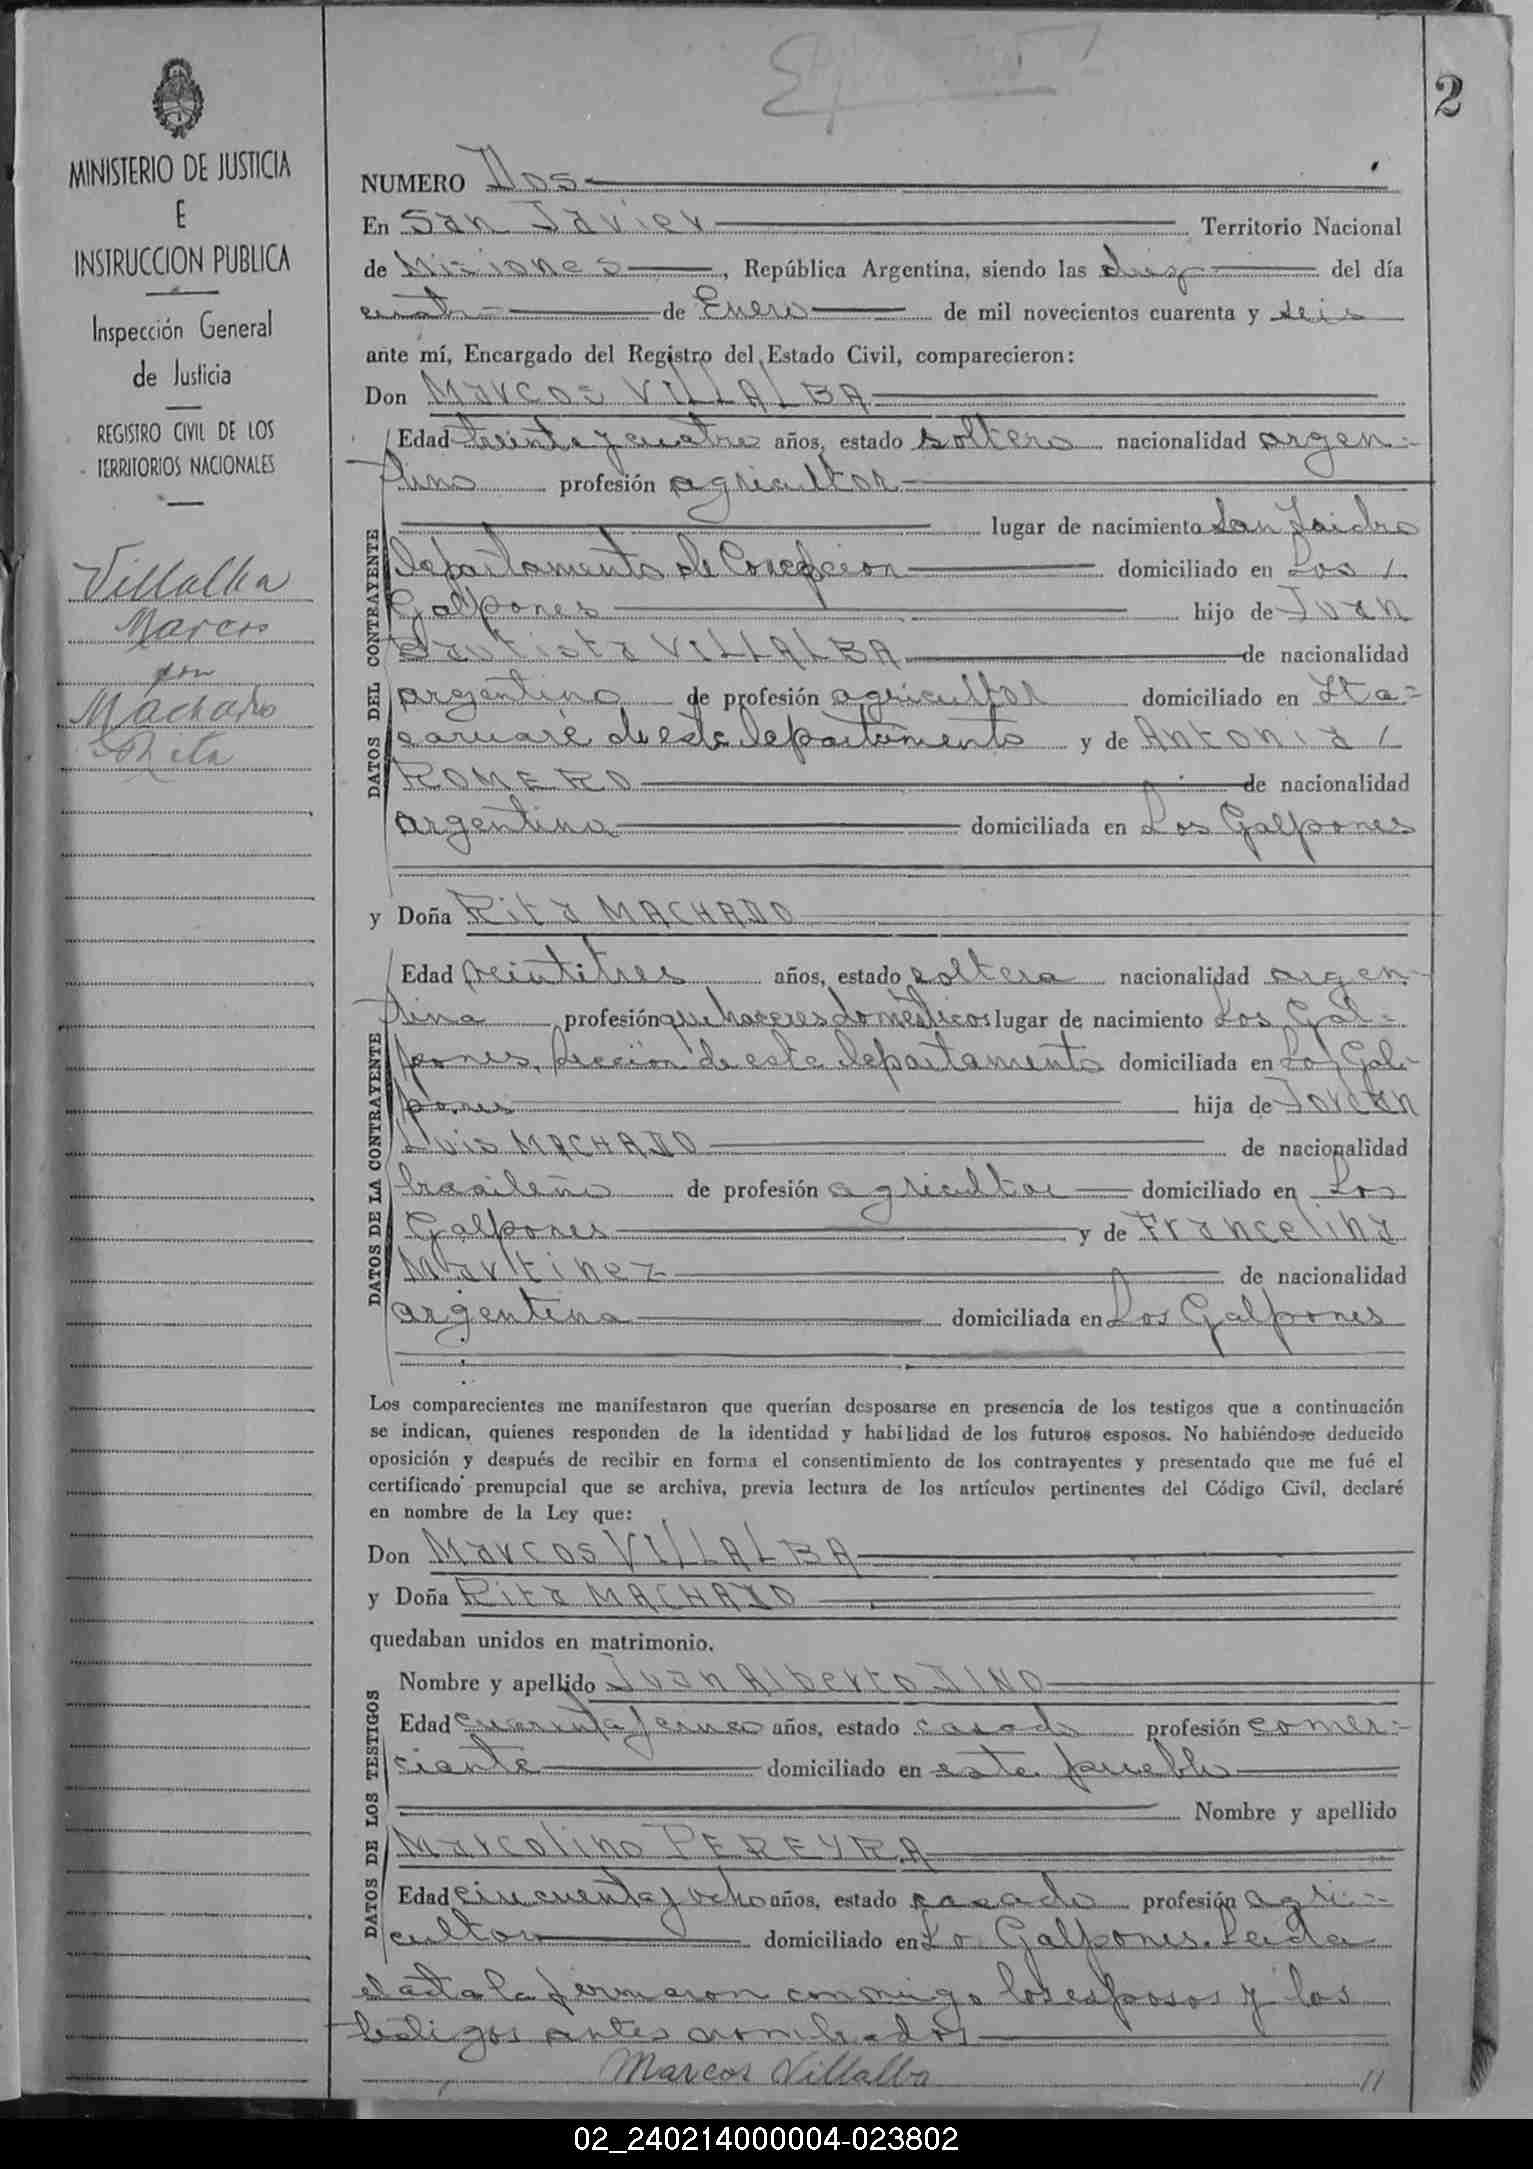 2
MINISTERIO DE JUSTICIA
E
INSTRUCCION PUBLICA
Inspección General
de Justicia
REGISTRO CIVIL DE LOS
TERRITORIOS NACIONALES
Villalba
Marcos
con
Machado
Rita
NUMERO Dos
En San Javier Territorio Nacional
de Misiones, República Argentina, siendo las diez del día
cuatro de Enero de mil novecientos cuarenta y seis
ante mí, Encargado del Registro del Estado Civil, comparecieron:
Don Marcos VILLALBA
DATOS DEL CONTRAYENTE
Edad treinta y cuatro años, estado soltero nacionalidad argen-
tino profesión agricultor
lugar de nacimiento San Isidro
departamento de Concepcion domiciliado en Los /
Galpones hijo de Juan
Bautista VILLALBA de nacionalidad
argentino de profesión agricultor domiciliado en Ita=
caruaré de este departamento y de Antonia /
ROMERO de nacionalidad
argentina domiciliada en Los Galpones
y Doña Rita MACHADO
DATOS DE LA CONTRAYENTE
Edad veintitres años, estado soltera nacionalidad argen-
tina profesión quehaceres domésticos lugar de nacimiento Los Gal=
pones, sección de este departamento domiciliada en Los Gal-
pones hija de Jordan
Luis MACHADO de nacionalidad
brasileño de profesión agricultor domiciliado en Los
Galpones y de Francelina
Martinez de nacionalidad
argentina domiciliada en Los Galpones
Los comparecientes me manifestaron que querían desposarse en presencia de los testigos que a continuación
se indican, quienes responden de la identidad y habilidad de los futuros esposos. No habiéndose deducido
oposición y después de recibir en forma el consentimiento de los contrayentes y presentado que me fué el
certificado prenupcial que se archiva, previa lectura de los artículos pertinentes del Código Civil, declaré
en nombre de la Ley que:
Don Marcos VILLALBA
y Doña Rita MACHADO
quedaban unidos en matrimonio.
DATOS DE LOS TESTIGOS
Nombre y apellido Juan Alberto DINO
Edad cuarenta y cinco años, estado casado profesión comer-
ciante domiciliado en este pueblo
Nombre y apellido
Marcolino PEREYRA
Edad cincuenta y ocho años, estado casado profesión agri-
cultor domiciliado en Los Galpones. Leida
el acta la firmaron conmigo los esposos y los
testigos antes nombrados
Marcos Villalba //
02_240214000004-023802